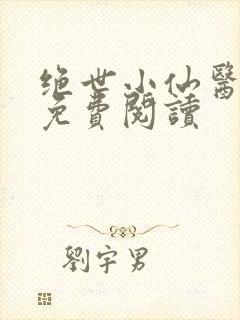 绝世小仙醫
免費閱讀
劉宇男